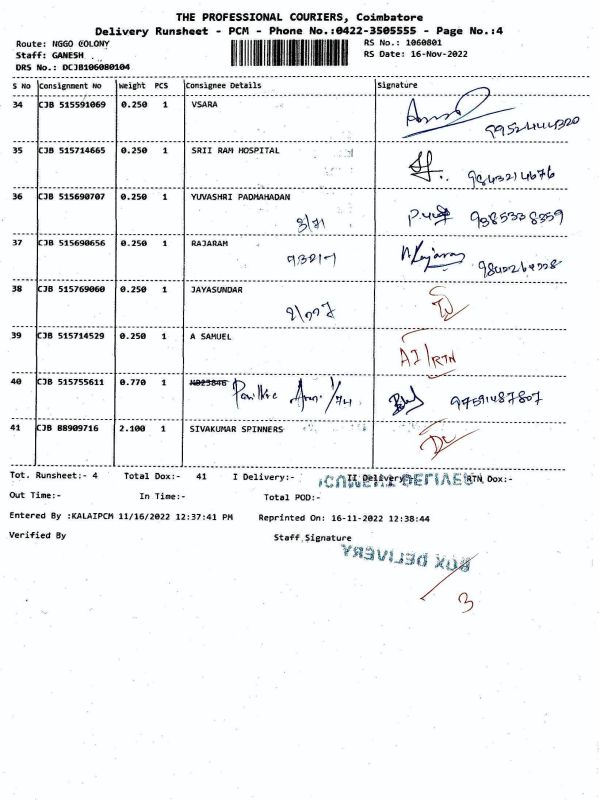 THE PROFESSIONAL COURIERS, Coimbatore
Delivery Runsheet - PCM - Phone No.:0422-3505555 - Page No.:4
Route: NGGO COLONY RS No.: 1060801
Staff: GANESH RS Date: 16-Nov-2022
DRS No.: DCJB106080104
S No Consignment No Weight PCS Consignee Details Signature
34 CJB 515591069 0.250 1 VSARA
9952444320
35 CJB 515714665 0.250 1 SRII RAM HOSPITAL
9843214676
36 CJB 515690707 0.250 1 YUVASHRI PADMAHADAN
3/71 9385338359
37 CJB 515690656 0.250 1 RAJARAM
38 CJB 515769060 0.250 1 JAYASUNDAR
39 CJB 515714529 0.250 1 A SAMUEL
AI/RTN
40 CJB 515755611 0.770 1 1/74 97591487807
41 CJB 88909716 2.100 1 SIVAKUMAR SPINNERS
DL
Tot. Runsheet:- 4 Total Dox:- 41 I Delivery:- II Delivery:- RTN Dox:-
Out Time:- In Time:- Total POD:-
Entered By :KALAIPCM 11/16/2022 12:37:41 PM Reprinted On: 16-11-2022 12:38:44
Verified By Staff Signature
BOX DELIVERY
3